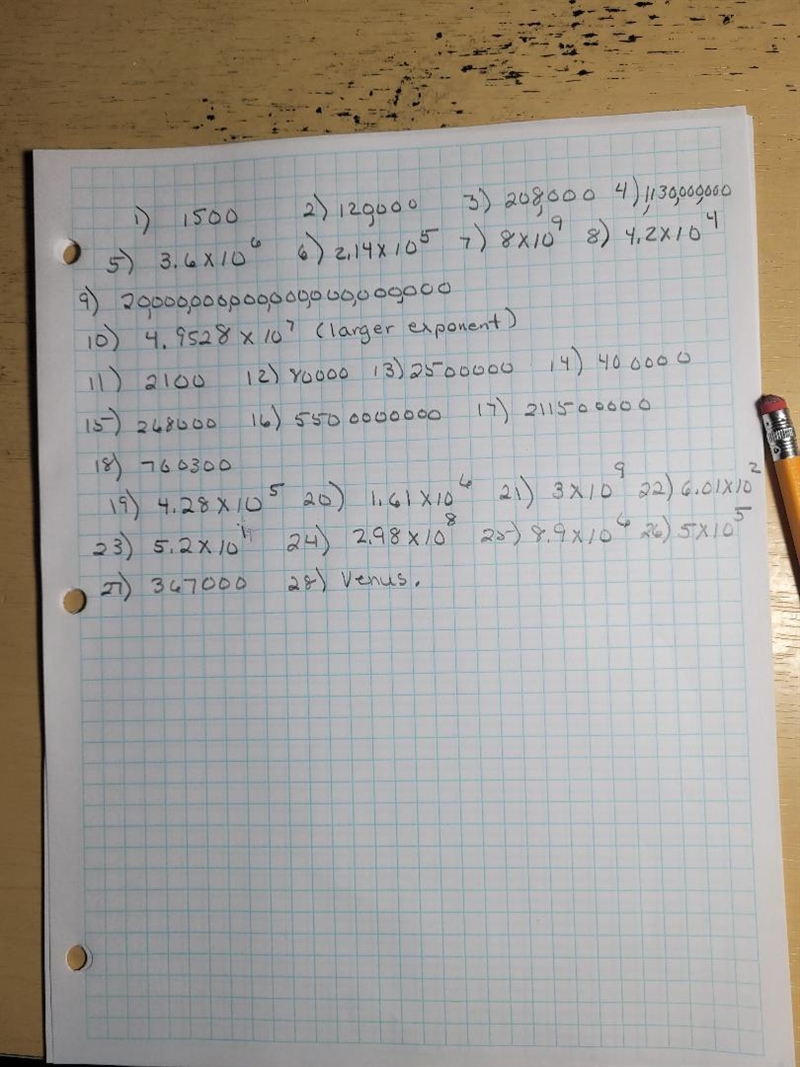 1) 1500 2) 120000 3) 208,000 4) 1,130,000,000
5) 3.6 x 10^6 6) 2.14 x 10^5 7) 8 x 10^9 8) 4.2 x 10^4
9) 20,000,000,000,000,000,000,000
10) 4.9528 x 10^7 (larger exponent)
11) 2100 12) 80000 13) 2500000 14) 400000
15) 268000 16) 5500000000 17) 211500000
18) 760300
19) 4.28 x 10^5 20) 1.61 x 10^6 21) 3 x 10^9 22) 6.01 x 10^2
23) 5.2 x 10 24) 2.98 x 10^8 25) 8.9 x 10^6 26) 5 x 10^5
27) 367000 28) Venus.